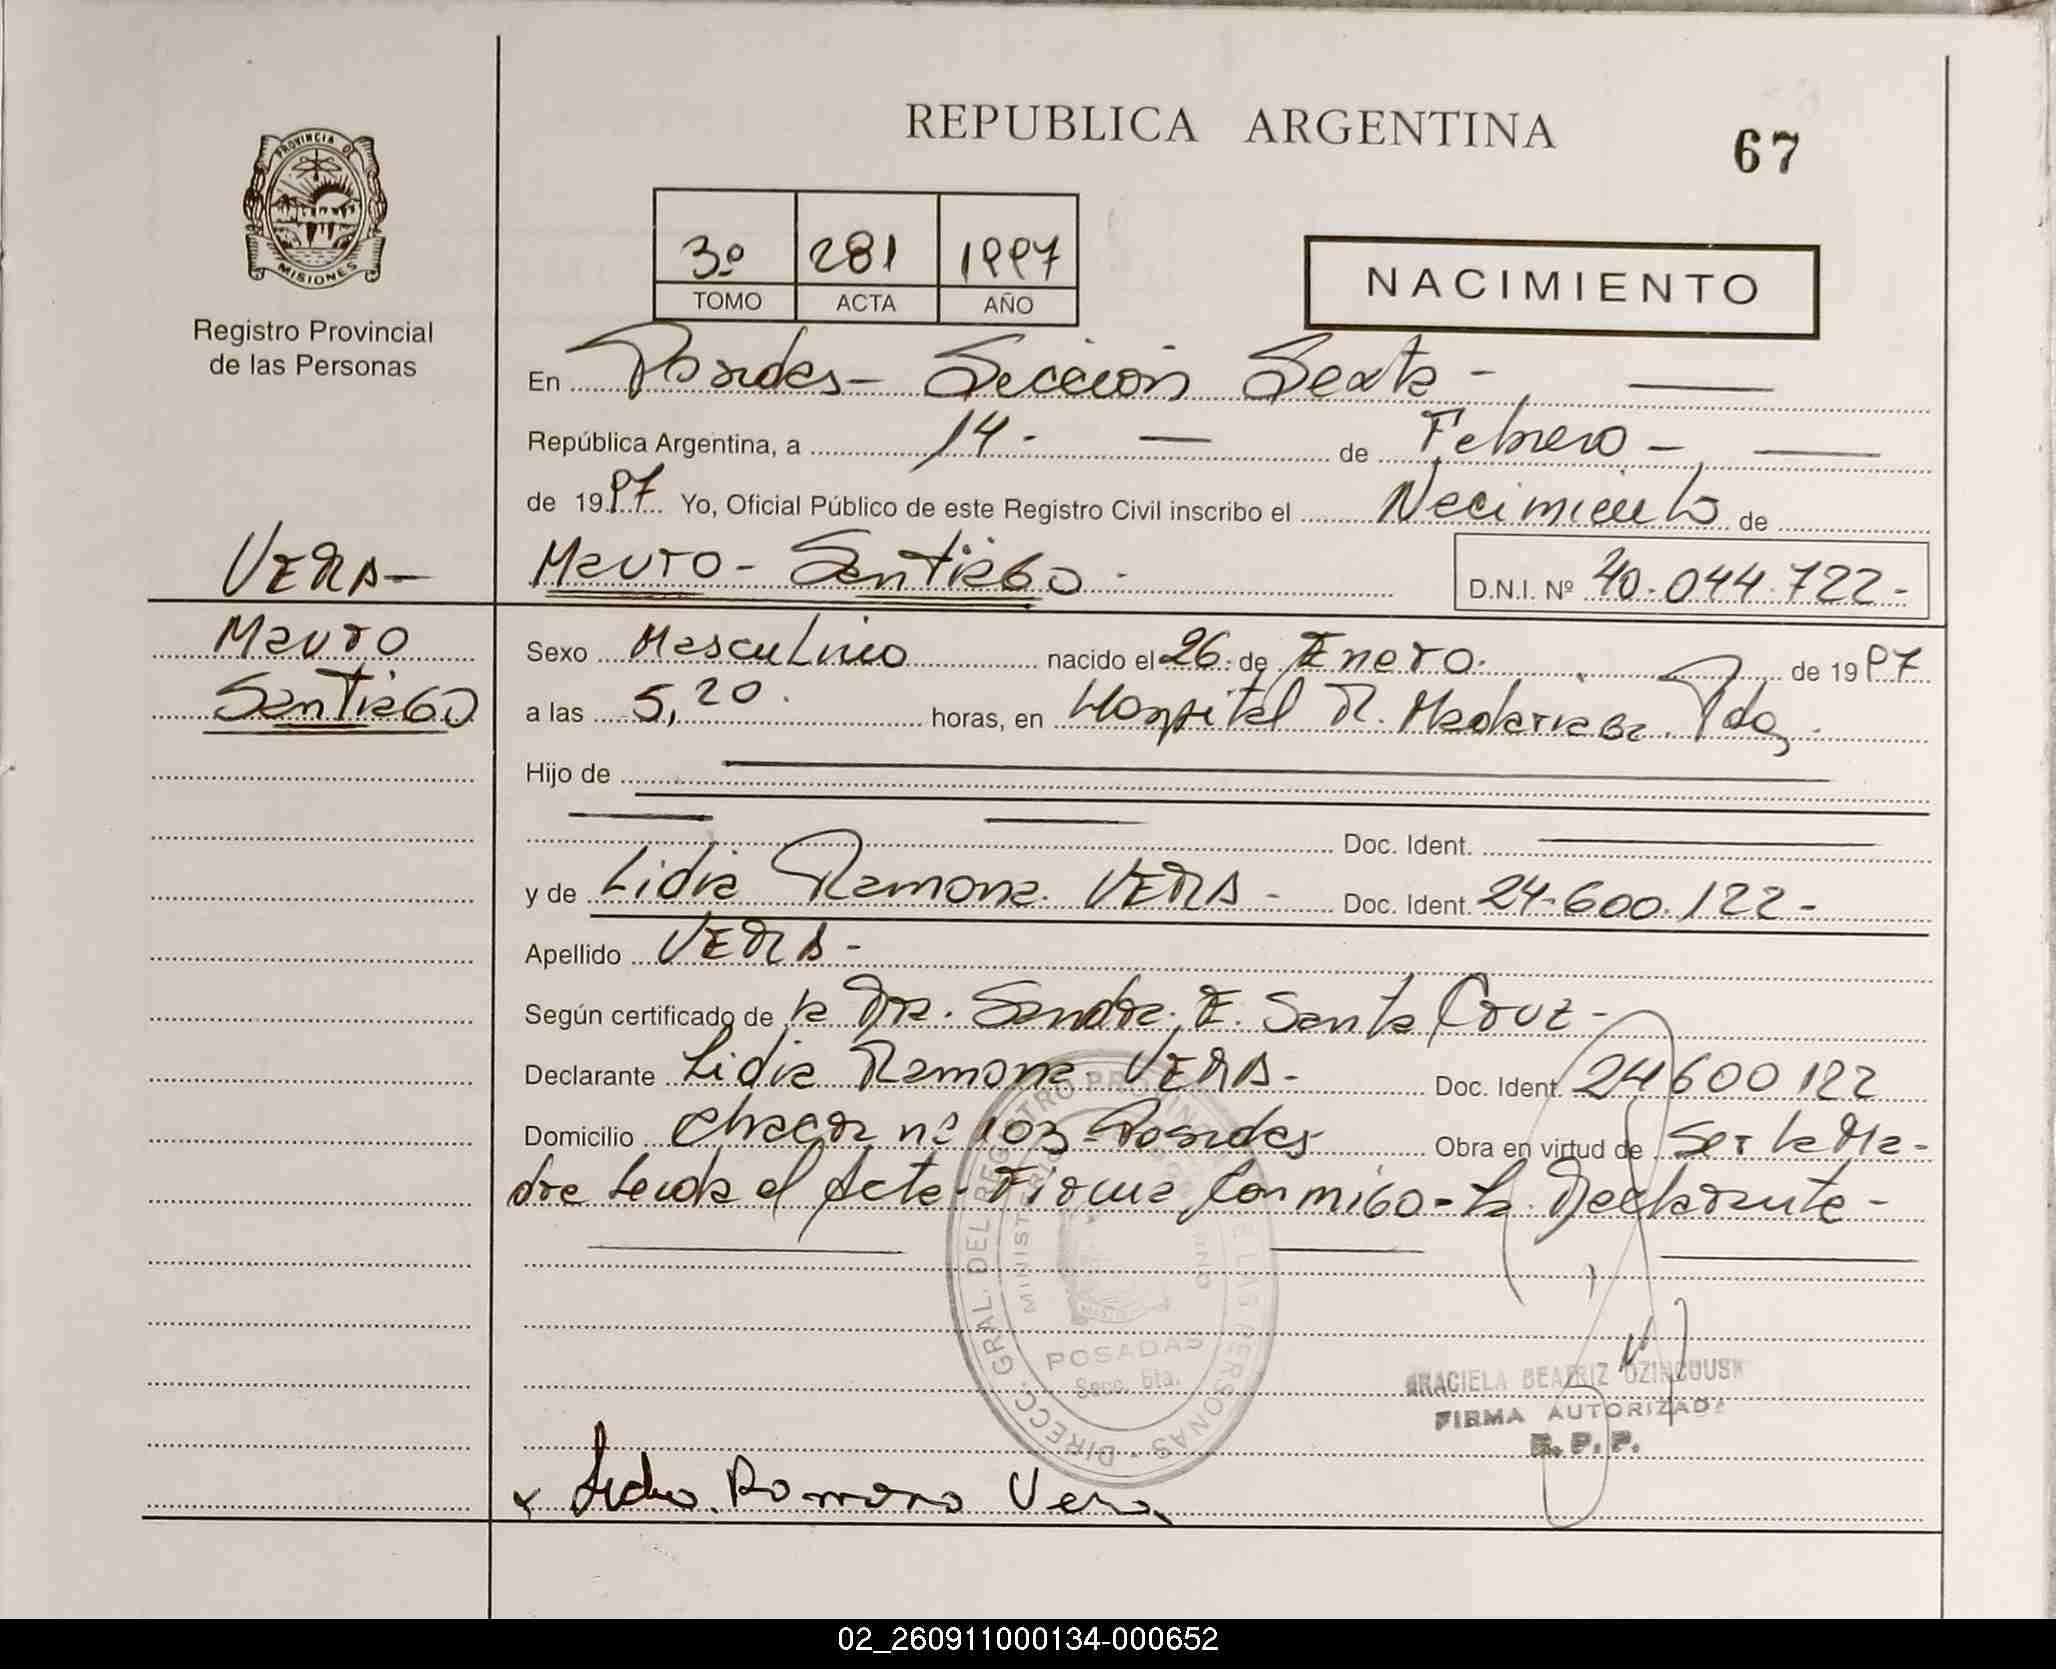 REPUBLICA ARGENTINA
67
PROVINCIA DE
MISIONES
Registro Provincial
de las Personas
3º 281 1997
TOMO ACTA AÑO
NACIMIENTO
En Posadas - Sección Sexta -
República Argentina, a 14 - de Febrero -
de 1997 Yo, Oficial Público de este Registro Civil inscribo el Nacimiento de
VERA -
Mauro - Santiago -
D.N.I. Nº 40.044.722 -
Mauro
Santiago
Sexo Masculino nacido el 26 de Enero. de 1997
a las 5,20. horas, en Hospital R. Madariaga. Pdas.
Hijo de
Doc. Ident.
y de Lidia Ramona VERA - Doc. Ident. 24.600.122 -
Apellido VERA -
Según certificado de la Dra. Sandra. E. Santa Cruz -
Declarante Lidia Ramona VERA - Doc. Ident. 24600122
Domicilio Chacra nº 103 - Posadas Obra en virtud de Ser la Ma-
dre Leida el Acta - Firma Conmigo - La Declarante -
DIRECC. GRAL. DEL REGISTRO PROVINCIAL DE LAS PERSONAS
MINISTERIO
POSADAS
Secc. 6ta.
GRACIELA BEATRIZ
FIRMA AUTORIZADA
R. P. P.
x Lidia Ramona Vera
02_260911000134-000652